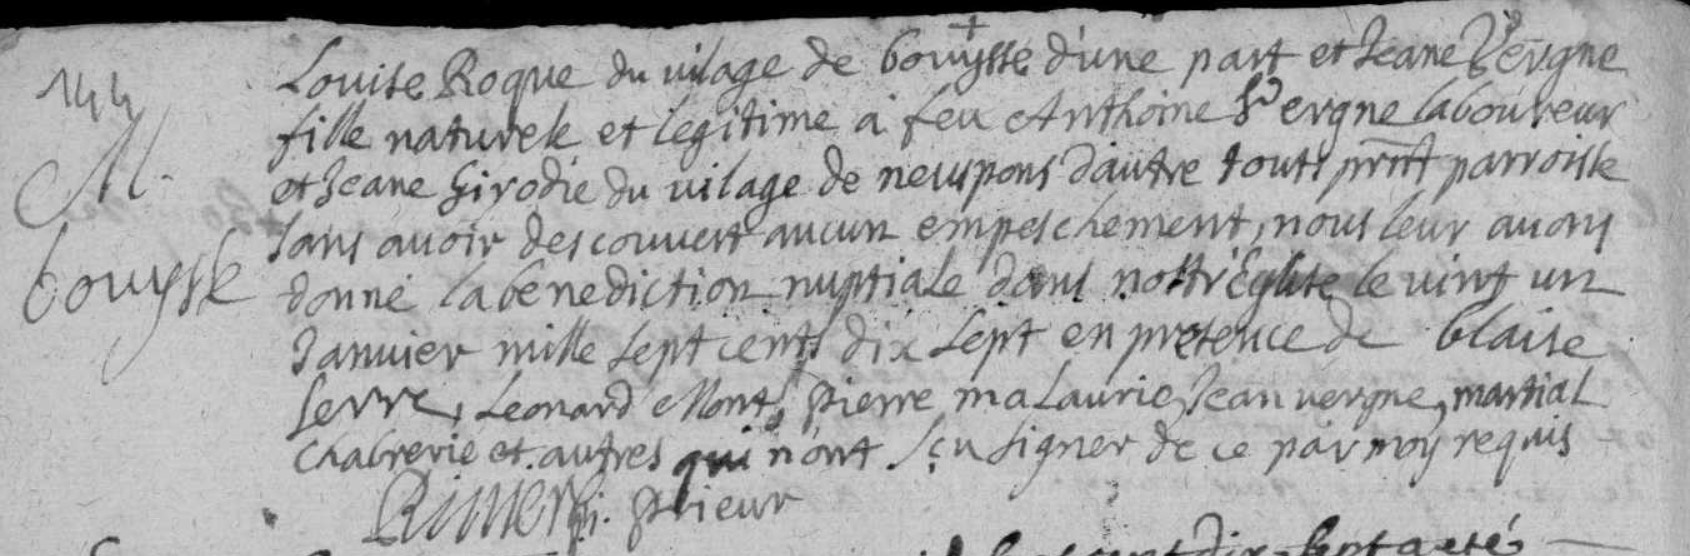 144
M.
bouysse
Louise Roque du vilage de bouysse d'une part et Jeane Vergne
fille naturele et legitime à feu Anthoine Vergne laboureur
et Jeane Girodie du vilage de neuspons d'autre touts prnt parroisse
sans avoir descouvert aucun empeschement, nous leur avons
donné la benediction nuptiale dans nostr'Eglise le vint un
Janvier mille sept cents dix sept en presence de blaise
serre, Leonard Mont, pierre malaurie, Jean vergne, martial
chabrerie et autres qui n'ont sçu signer de ce par moy requis
prieur